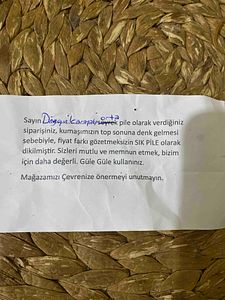 Sayın pile olarak verdiğiniz
siparişiniz, kumaşımızın top sonuna denk gelmesi
sebebiyle, fiyat farkı gözetmeksizin SIK PİLE olarak
dikilmiştir. Sizleri mutlu ve memnun etmek, bizim
için daha değerli. Güle Güle kullanınız.
Mağazamızı Çevrenize önermeyi unutmayın.